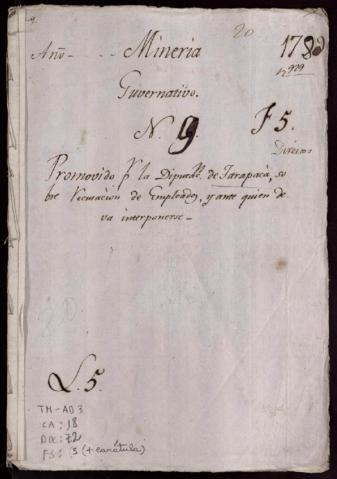 20
Año - - - Mineria 1789
Guvernativo.
N. 9. F 5.
Promovido pr la Diputacn. de Tarapacá, so
bre Recusacion de Empleados, y ante quien de
va interponerse -
L. 5.
TM-AD3
CA: 18
DOC: 72
FS: 5 (+ carátula)